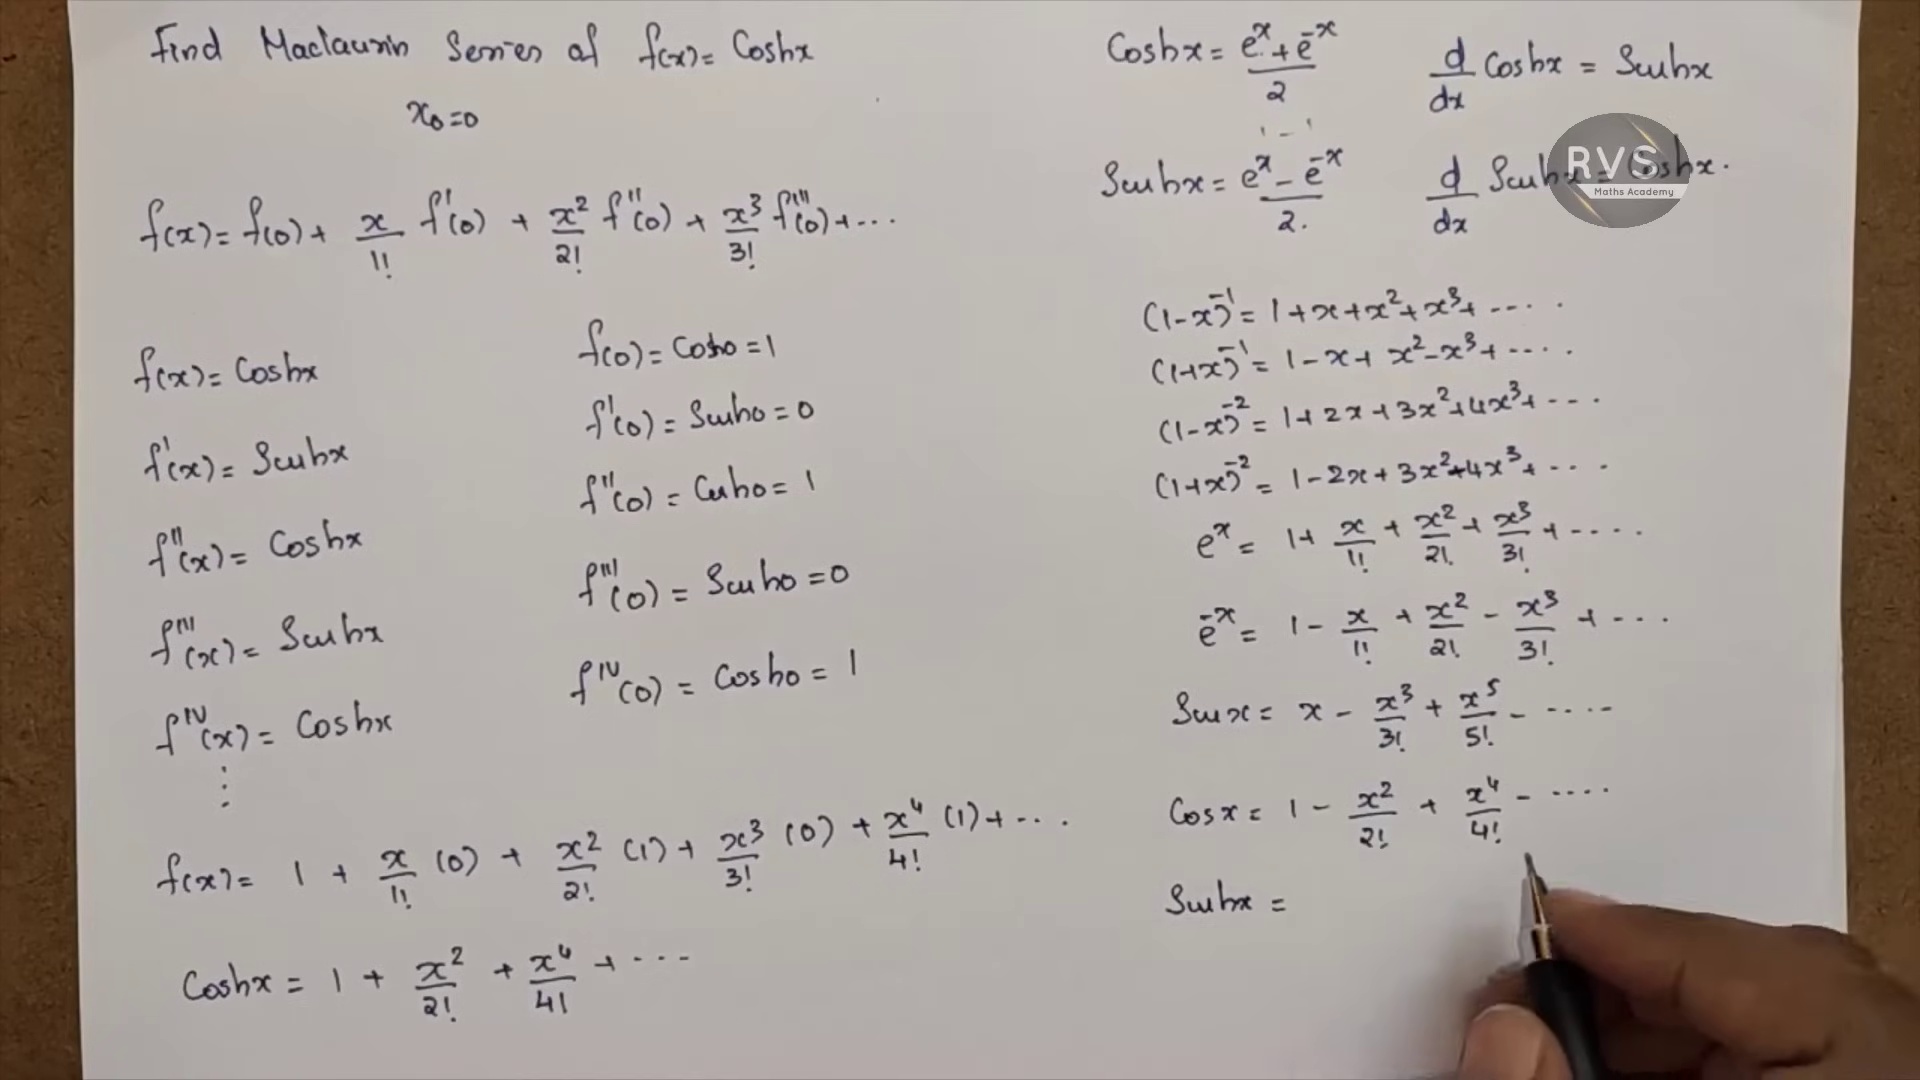 Find Maclaurin Series of f(x) = Coshx
x₀=0
f(x) = f(0) + x/1! f'(0) + x²/2! f''(0) + x³/3! f'''(0) + ...
f(x) = Coshx
f(0) = Cosh0 = 1
f'(x) = Sinhx
f'(0) = Sinh0 = 0
f''(x) = Coshx
f''(0) = Cosh0 = 1
f'''(x) = Sinhx
f'''(0) = Sinh0 = 0
f^IV(x) = Coshx
f^IV(0) = Cosh0 = 1
⋮
f(x) = 1 + x/1! (0) + x²/2! (1) + x³/3! (0) + x⁴/4! (1) + ...
Coshx = 1 + x²/2! + x⁴/4! + ...
Coshx = (e^x + e^-x)/2
d/dx Coshx = Sinhx
Sinhx = (e^x - e^-x)/2.
d/dx Sinhx = Coshx.
RVS
Maths Academy
(1-x)^-1 = 1+x+x²+x³+ ....
(1+x)^-1 = 1-x+x²-x³+ ....
(1-x)^-2 = 1+2x+3x²+4x³+ ...
(1+x)^-2 = 1-2x+3x²-4x³+ ...
e^x = 1+ x/1! + x²/2! + x³/3! + ....
e^-x = 1 - x/1! + x²/2! - x³/3! + ...
Sinx = x - x³/3! + x⁵/5! - ....
Cosx = 1 - x²/2! + x⁴/4! - ....
Sinhx =